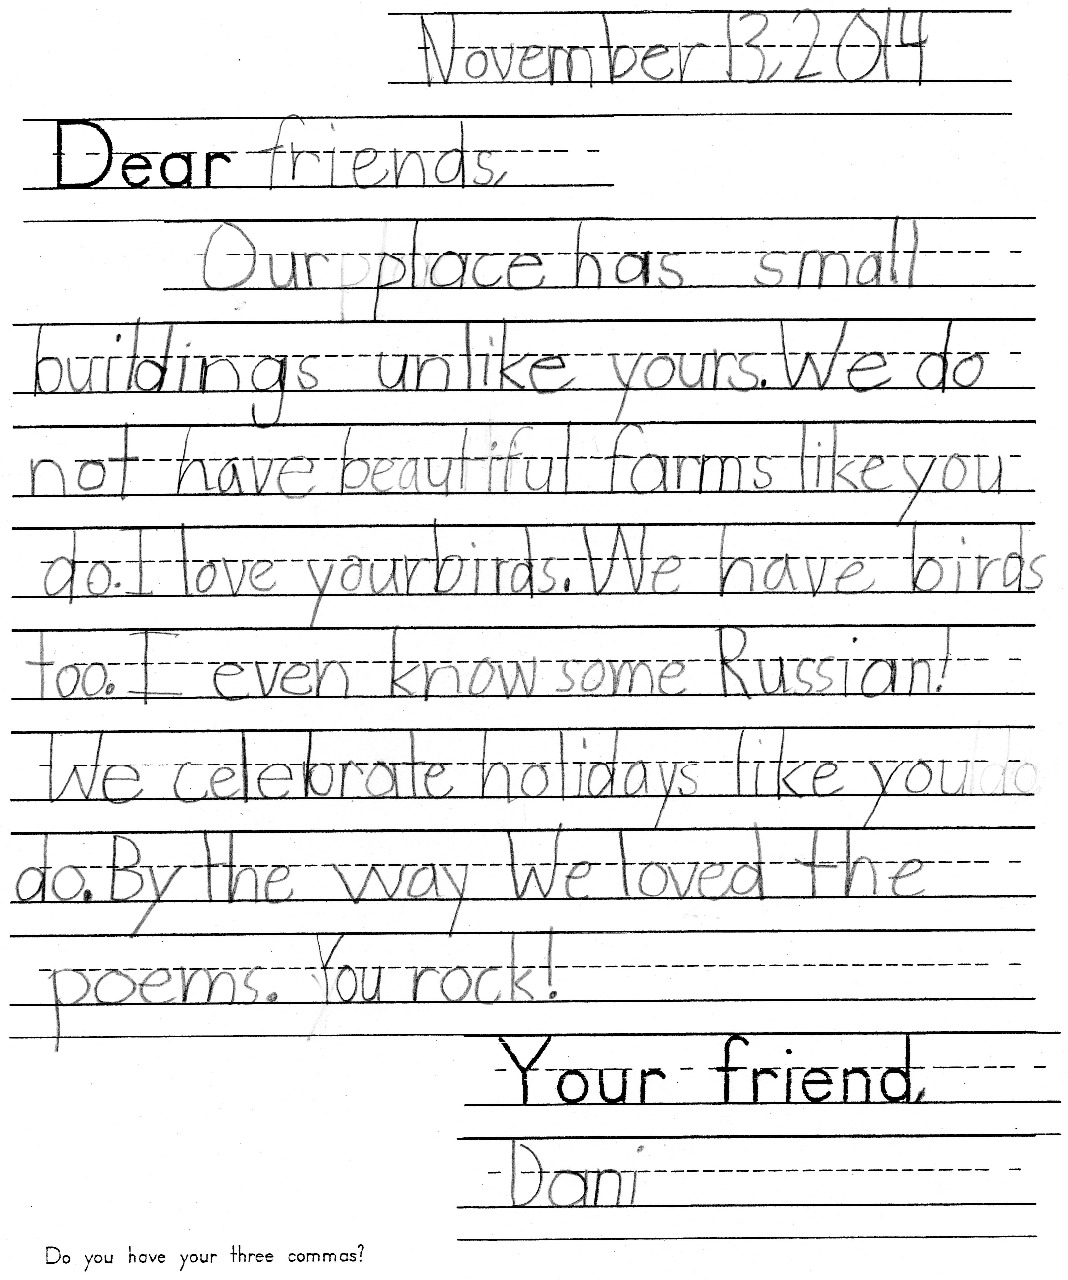 November 13, 2014
Dear friends,
Our place has small
buildings unlike yours. We do
not have beautiful farms like you
do. I love your birds. We have birds
too. I even know some Russian!
We celebrate holidays like you
do. By the way We loved the
poems. You rock!
Your friend,
Dani
Do you have your three commas?